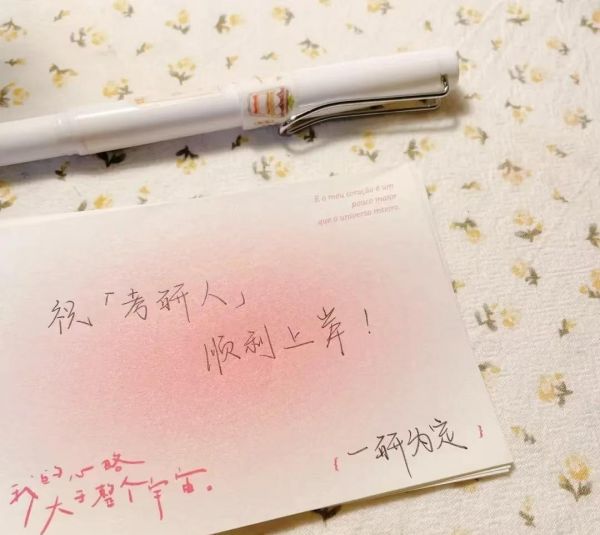 E o meu coração é um
pouco maior
que o universo inteiro.
祝「考研人」
顺利上岸！
{一研为定}
我的心略
大于整个宇宙。